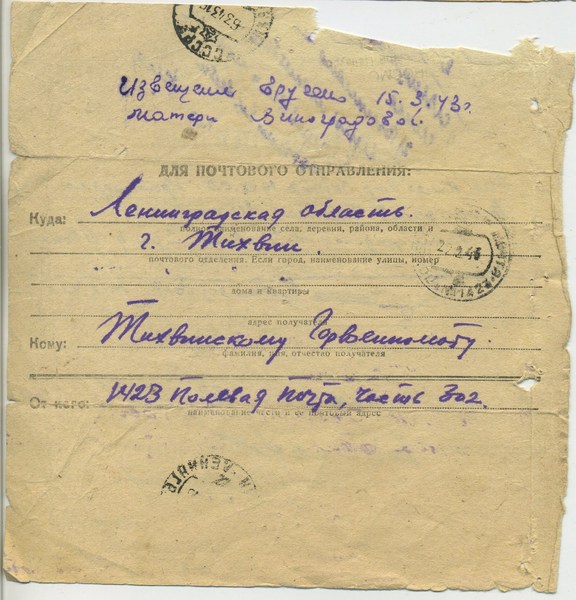 СССР
6 3 43
Извещение вручено 15.3.43г.
матери Виноградовой.
ДЛЯ ПОЧТОВОГО ОТПРАВЛЕНИЯ:
Куда: Ленинградская область.
полное наименование села, деревни, района, области и
г. Тихвин.
почтового отделения. Если город, наименование улицы, номер
дома и квартиры
адрес получателя
Кому: Тихвинскому Горвоенкомату.
фамилия, имя, отчество получателя
От кого: 1423 Полевая почта, часть 302.
наименование части и ее почтовый адрес